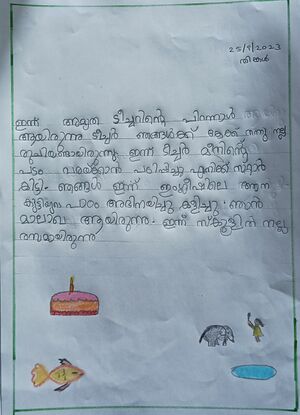 25/9/2023
തിങ്കൾ
ഇന്ന് അമൃത ടീച്ചറിന്റെ പിറന്നാൾ
ആയിരുന്നു ടീച്ചർ ഞങ്ങൾക്ക് കേക്ക് തന്നു നല്ല
രുചിയുണ്ടായിരുന്നു. ഇന്ന് ടീച്ചർ മീനിന്റെ
പടം വരയ്ക്കാൻ പഠിപ്പിച്ചു എനിക്ക് സ്റ്റാർ
കിട്ടി. ഞങ്ങൾ ഇന്ന് ഇംഗ്ലീഷിലെ ആന
കുട്ടിയുടെ പാഠം അഭിനയിച്ചു കളിച്ചു. ഞാൻ
ആയിരുന്നു. ഇന്ന് സ്കൂളിൽ നല്ല
രസമായിരുന്നു